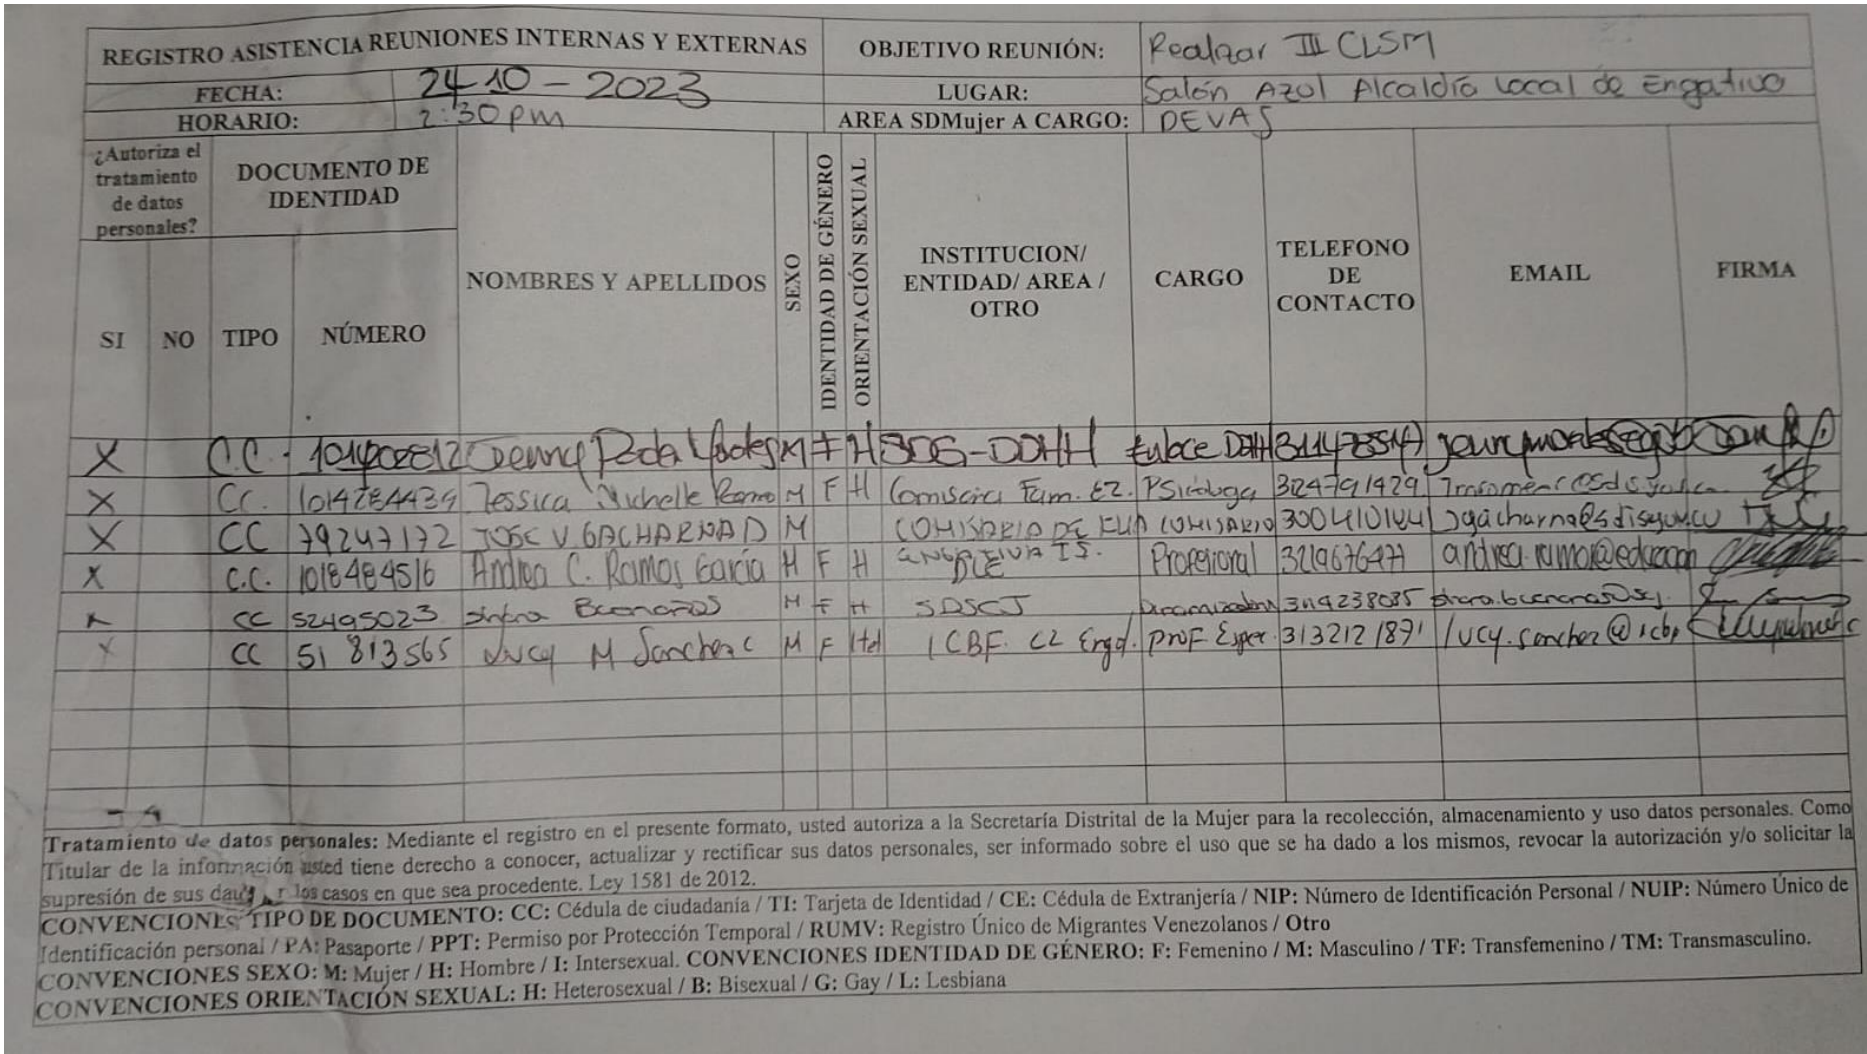 REGISTRO ASISTENCIA REUNIONES INTERNAS Y EXTERNAS OBJETIVO REUNIÓN: Realizar III CLSM
FECHA: 24-10-2023 LUGAR: Salón Azul Alcaldía Local de Engativa
HORARIO: 2:30 pm AREA SDMujer A CARGO: DEVAJ
¿Autoriza el tratamiento de datos personales? DOCUMENTO DE IDENTIDAD NOMBRES Y APELLIDOS SEXO IDENTIDAD DE GÉNERO ORIENTACIÓN SEXUAL INSTITUCION/ ENTIDAD/ AREA / OTRO CARGO TELEFONO DE CONTACTO EMAIL FIRMA
SI NO TIPO NÚMERO
X C.C. Jenny M F H SDG-DDHH Enlace DDHH
X CC. 1014284439 Jessica Michelle Romo M F H Comisaria Fam. E2. Psicologa 3124791429
X CC 79247172 JOSE V GACHARNA D M COMISARIO DE FLIA ENGATIVA COMISARIO 3004101441
X C.C. 1018484516 Andrea C. Ramos García H F H DLE Profesional
X CC 52495023 Buenaños M F H SDSCJ 3114238035
X CC 51 813565 Lucy M Sanchez C M F Htl ICBF. CZ Engd. Prof Esper. 3132121891 lucy.sanchez@icbf
Tratamiento de datos personales: Mediante el registro en el presente formato, usted autoriza a la Secretaría Distrital de la Mujer para la recolección, almacenamiento y uso datos personales. Como
Titular de la información usted tiene derecho a conocer, actualizar y rectificar sus datos personales, ser informado sobre el uso que se ha dado a los mismos, revocar la autorización y/o solicitar la
supresión de sus los casos en que sea procedente. Ley 1581 de 2012.
CONVENCIONES TIPO DE DOCUMENTO: CC: Cédula de ciudadanía / TI: Tarjeta de Identidad / CE: Cédula de Extranjería / NIP: Número de Identificación Personal / NUIP: Número Único de
Identificación personal / PA: Pasaporte / PPT: Permiso por Protección Temporal / RUMV: Registro Único de Migrantes Venezolanos / Otro
CONVENCIONES SEXO: M: Mujer / H: Hombre / I: Intersexual. CONVENCIONES IDENTIDAD DE GÉNERO: F: Femenino / M: Masculino / TF: Transfemenino / TM: Transmasculino.
CONVENCIONES ORIENTACIÓN SEXUAL: H: Heterosexual / B: Bisexual / G: Gay / L: Lesbiana